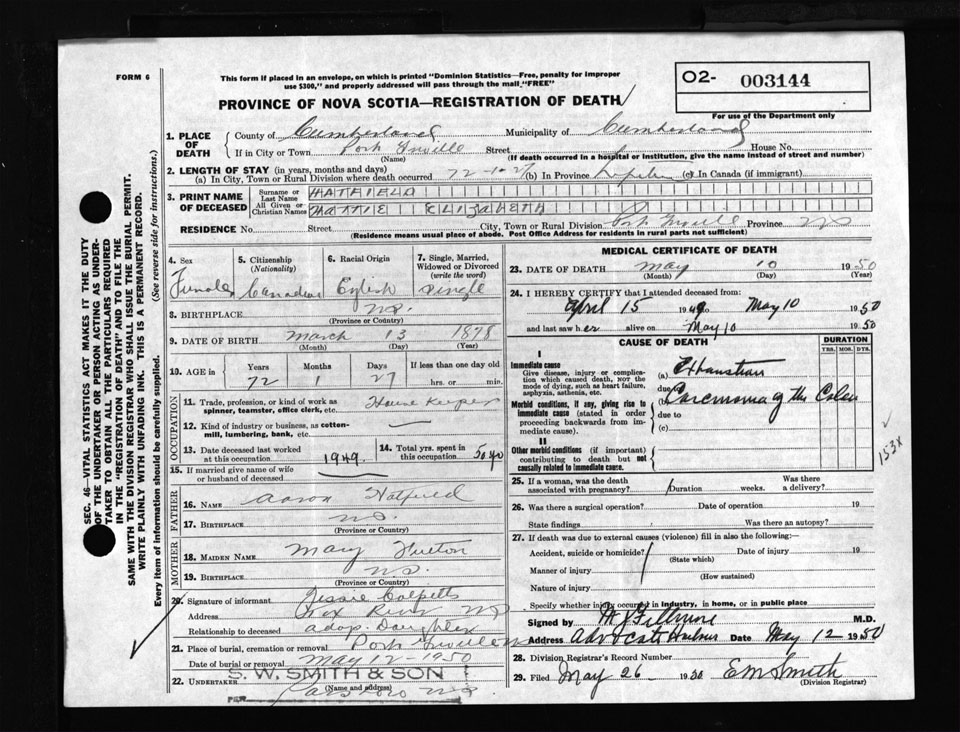 FORM 6
This form if placed in an envelope, on which is printed "Dominion Statistics—Free, penalty for improper
use $300," and properly addressed will pass through the mail "FREE"
PROVINCE OF NOVA SCOTIA—REGISTRATION OF DEATH
O2- 003144
For use of the Department only
1. PLACE OF DEATH
County of Cumberland Municipality of Cumberland
If in City or Town Port Greville Street House No.
(Name) (If death occurred in a hospital or institution, give the name instead of street and number)
2. LENGTH OF STAY (in years, months and days)
(a) In City, Town or Rural Division where death occurred 72-1-27 (b) In Province Lifetime (c) In Canada (if immigrant)
3. PRINT NAME OF DECEASED
Surname or Last Name HATFIELD
All Given or Christian Names MATTIE ELIZABETH
RESIDENCE No. Street City, Town or Rural Division Port Greville Province N.S.
(Residence means usual place of abode. Post Office Address for residents in rural parts not sufficient)
4. Sex Female
5. Citizenship (Nationality) Canadian
6. Racial Origin English
7. Single, Married, Widowed or Divorced (write the word) Single
8. BIRTHPLACE N.S.
(Province or Country)
9. DATE OF BIRTH March 13 1878
(Month) (Day) (Year)
10. AGE in Years Months Days If less than one day old
72 1 27 hrs. or min.
OCCUPATION
11. Trade, profession, or kind of work as spinner, teamster, office clerk, etc. House Keeper
12. Kind of industry or business, as cotton-mill, lumbering, bank, etc.
13. Date deceased last worked at this occupation 1949
14. Total yrs. spent in this occupation 50 yo
15. If married give name of wife or husband of deceased
FATHER
16. NAME Aaron Hatfield
17. BIRTHPLACE N.S.
(Province or Country)
MOTHER
18. MAIDEN NAME Mary
19. BIRTHPLACE N.S.
(Province or Country)
20. Signature of informant Jessie Colpitts
Address River NS
Relationship to deceased adop. Daughter
21. Place of burial, cremation or removal Port Greville
Date of burial or removal May 12-1950
S. W. SMITH & SON
22. UNDERTAKER Parrsboro N.S.
(Name and address)
PER
MEDICAL CERTIFICATE OF DEATH
23. DATE OF DEATH May 10 1950
(Month) (Day) (Year)
24. I HEREBY CERTIFY that I attended deceased from:
April 15 1949 to May 10 1950
and last saw her alive on May 10 1950
CAUSE OF DEATH
DURATION
YRS. MOS. DYS.
I
Immediate cause
Give disease, injury or complication which caused death, not the mode of dying, such as heart failure, asphyxia, asthenia, etc.
(a) Exhaustion
due to
Morbid conditions, if any, giving rise to immediate cause (stated in order proceeding backwards from immediate cause).
Carcinoma of the Colon
due to
(c)
II
Other morbid conditions (if important) contributing to death but not causally related to immediate cause.
153X
25. If a woman, was the death associated with pregnancy? Duration weeks. Was there a delivery?
26. Was there a surgical operation? Date of operation 19
State findings Was there an autopsy?
27. If death was due to external causes (violence) fill in also the following:—
Accident, suicide or homicide? Date of injury 19
(State which)
Manner of injury
(How sustained)
Nature of injury
Specify whether injury occurred in industry, in home, or in public place
Signed by M J Fillmore M.D.
Address Advocate Harbour Date May 12 1950
28. Division Registrar's Record Number
29. Filed May 26 1950 EM Smith
(Division Registrar)
SEC. 46—VITAL STATISTICS ACT MAKES IT THE DUTY
OF THE UNDERTAKER OR PERSON ACTING AS UNDER-
TAKER TO OBTAIN ALL THE PARTICULARS REQUIRED
IN THE "REGISTRATION OF DEATH" AND TO FILE THE
SAME WITH THE DIVISION REGISTRAR WHO SHALL ISSUE THE BURIAL PERMIT.
WRITE PLAINLY WITH UNFADING INK. THIS IS A PERMANENT RECORD.
Every item of information should be carefully supplied. (See reverse side for instructions.)